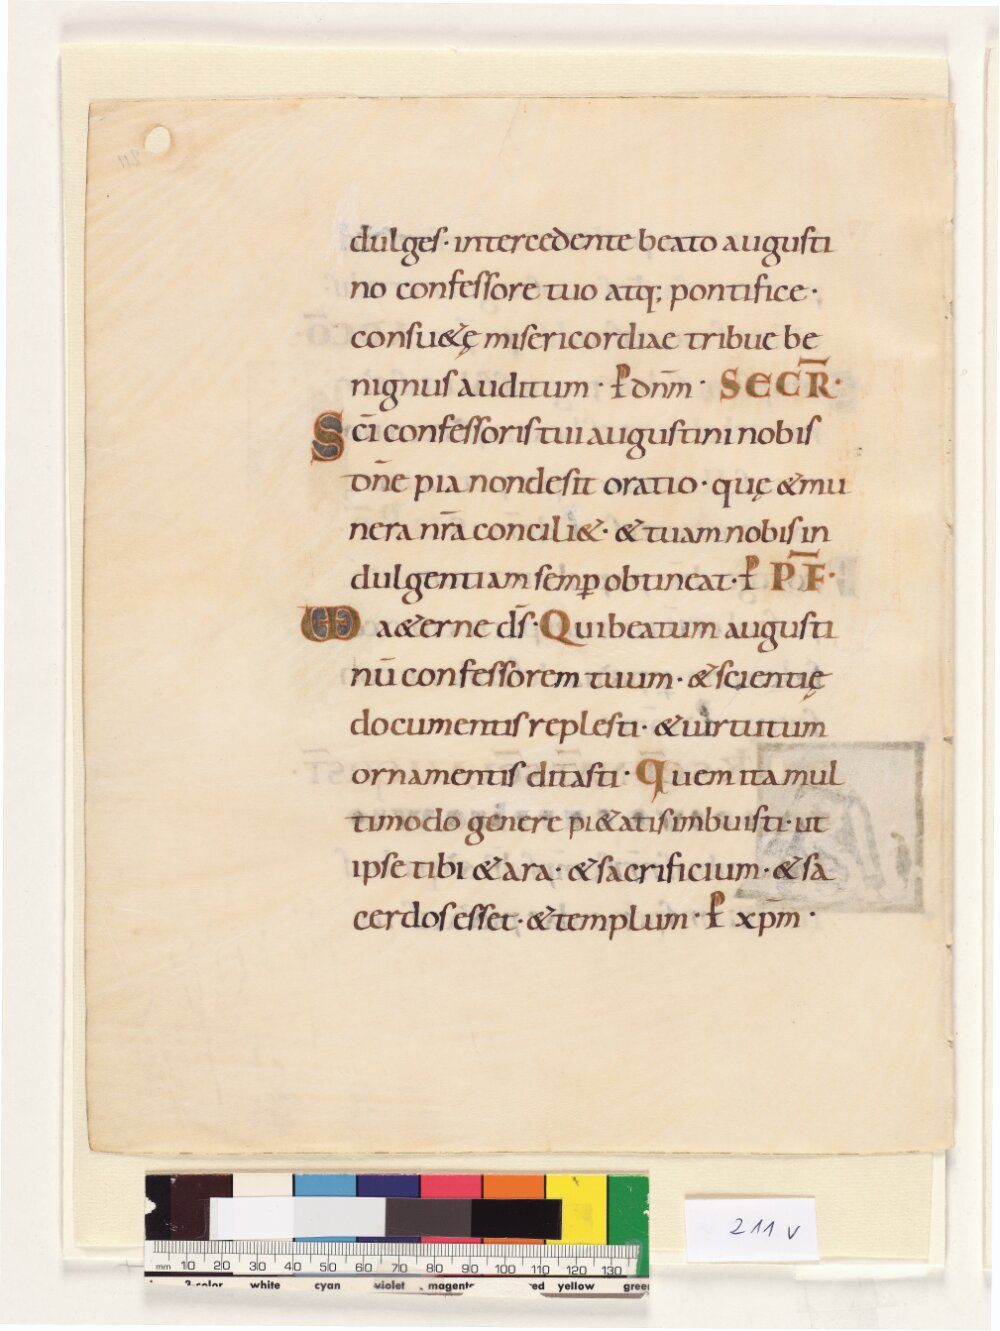 dulges· intercedente beato augusti
no confessore tuo atq; pontifice·
consu&ę misericordiae tribue be
nignus auditum· ꝑ dn̄m· SECR̄·
Sc̄i confessoris tui augustini nobis
dn̄e pia non desit oratio· quę & mu
nera nr̄a concili&· & tuam nobis in
dulgentiam semꝑ obtineat· ꝑ P̄F̄·
UD a&erne ds̄· Qui beatum augusti
nū confessorem tuum· & scientię
documentis replesti· & uirtutum
ornamentis ditasti· Quem ita mul
timodo genere pi&atis imbuisti· ut
ipse tibi & ara· & sacrificium· & sa
cerdos esset· & templum· ꝑ xp̄m·
mm 10 20 30 40 50 60 70 80 90 100 110 120 130
3-color white cyan violet magenta red yellow green
211 v